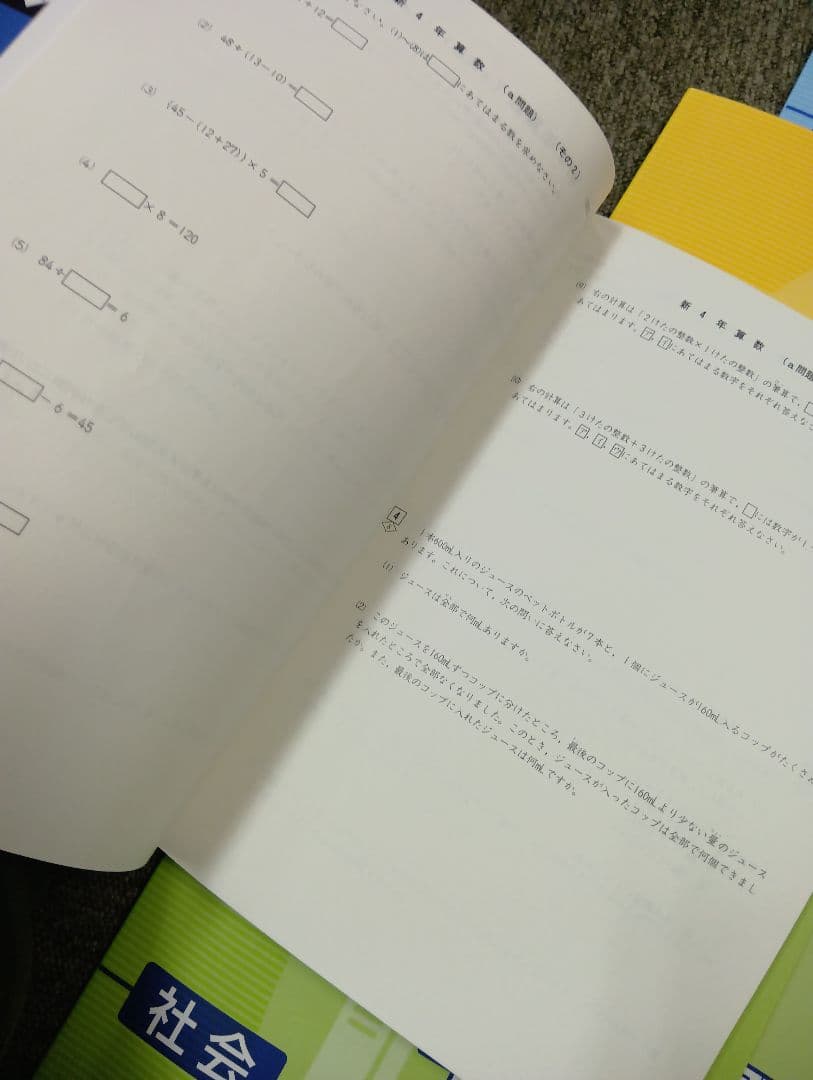 新 4 年 算 数 (a問題) (その2)
なさい。(1)~(8)は□にあてはまる数を求めなさい。
+12=□
(2) 48÷(13-10)=□
(3) {45-(12+27)}×5=□
(4) □×8=120
(5) 84÷□=6
□-6=45
新 4 年 算 数 (a問題
(9) 右の計算は「2けたの整数×1けたの整数」の筆算で、□
あてはまります。ア、イにあてはまる数字をそれぞれ答えなさ
(10) 右の計算は「3けたの整数+3けたの整数」の筆算で、□には数字が1つ
あてはまります。ア、イ、ウにあてはまる数字をそれぞれ答えなさい。
4
1本600mL入りのジュースのペットボトルが7本と、1個にジュースが160mL入るコップがたくさん
あります。これについて、次の問いに答えなさい。
(1) ジュースは全部で何mLありますか。
(2) このジュースを160mLずつコップに分けたところ、最後のコップに160mLより少ない量のジュース
を入れたところで全部なくなりました。このとき、ジュースが入ったコップは全部で何個できまし
たか。また、最後のコップに入れたジュースは何mLですか。
社会